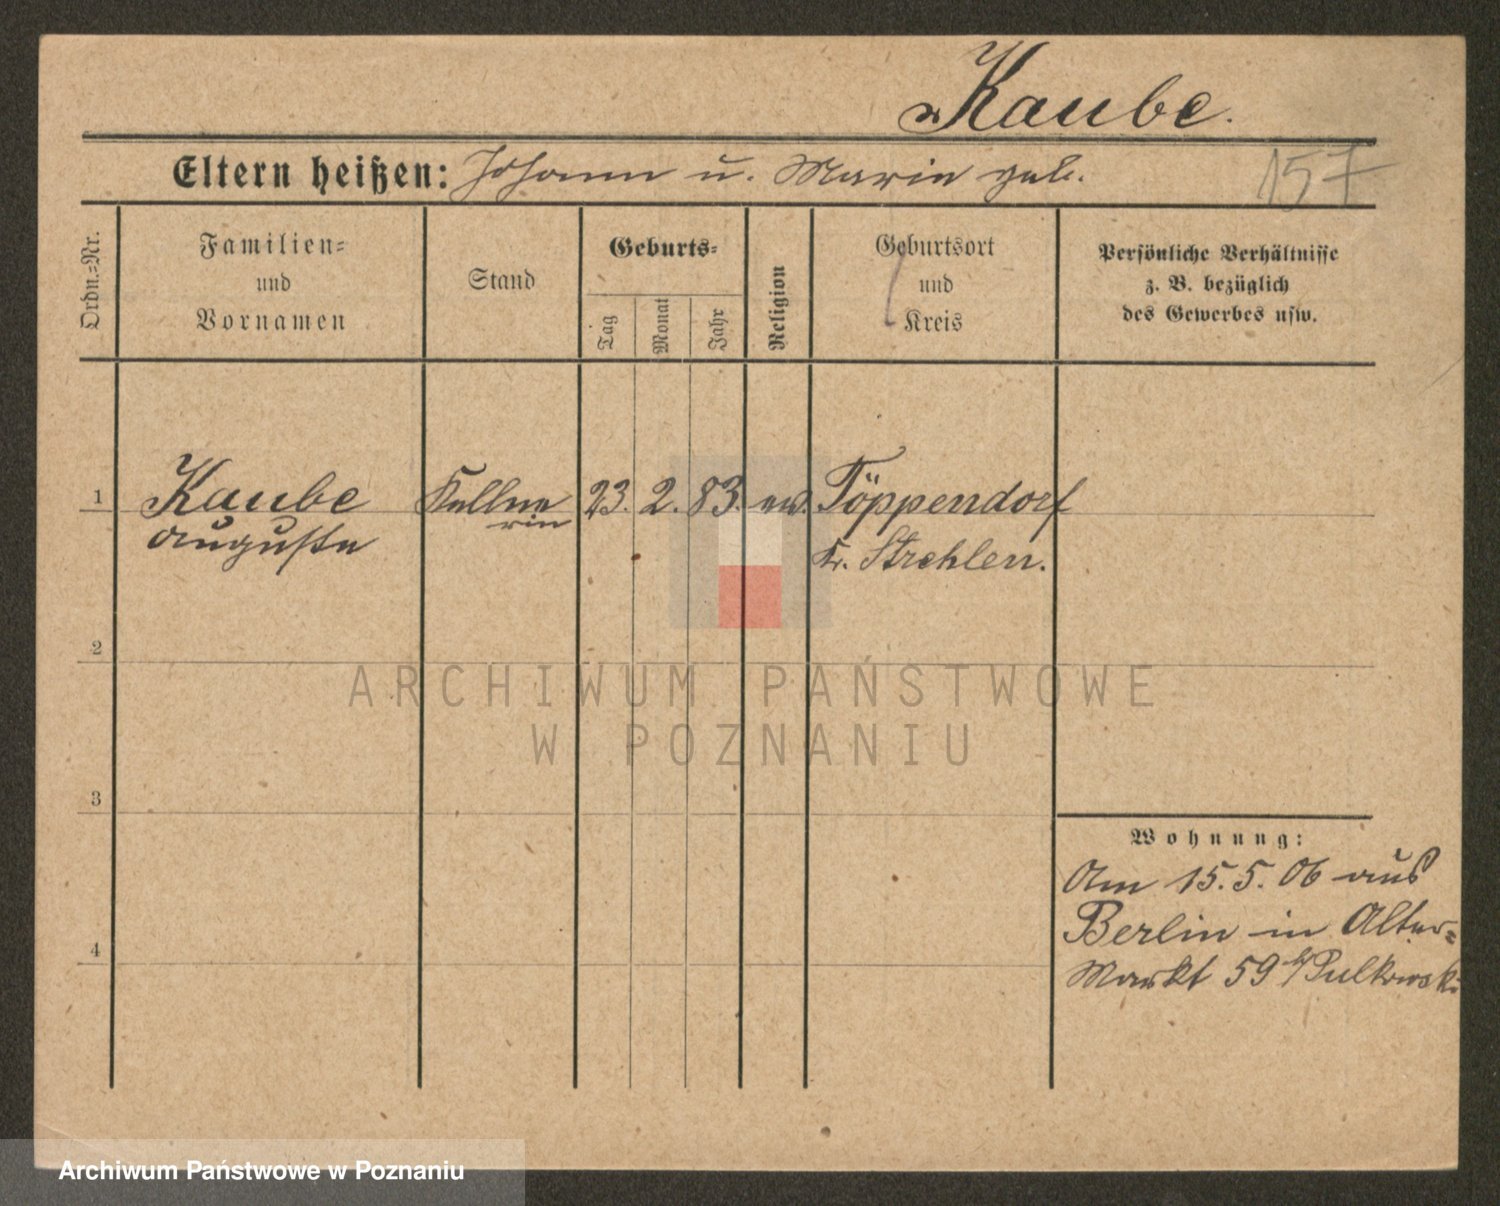 Kaube.
Eltern heißen: Johann u. Marie geb.
157
Ordn.=Nr.
Familien=
und
Vornamen
Stand
Geburts=
Tag
Monat
Jahr
Religion
Geburtsort
und
Kreis
Persönliche Verhältnisse
z. B. bezüglich
des Gewerbes usw.
1 Kaube Kellne 23. 2. 83. ev. Töppendorf
Auguste rin Kr. Strehlen.
2
ARCHIWUM PAŃSTWOWE
W POZNANIU
3
Wohnung:
Am 15. 5. 06 aus
Berlin in Alter=
4
Markt 59 b/Pulkowski
Archiwum Państwowe w Poznaniu